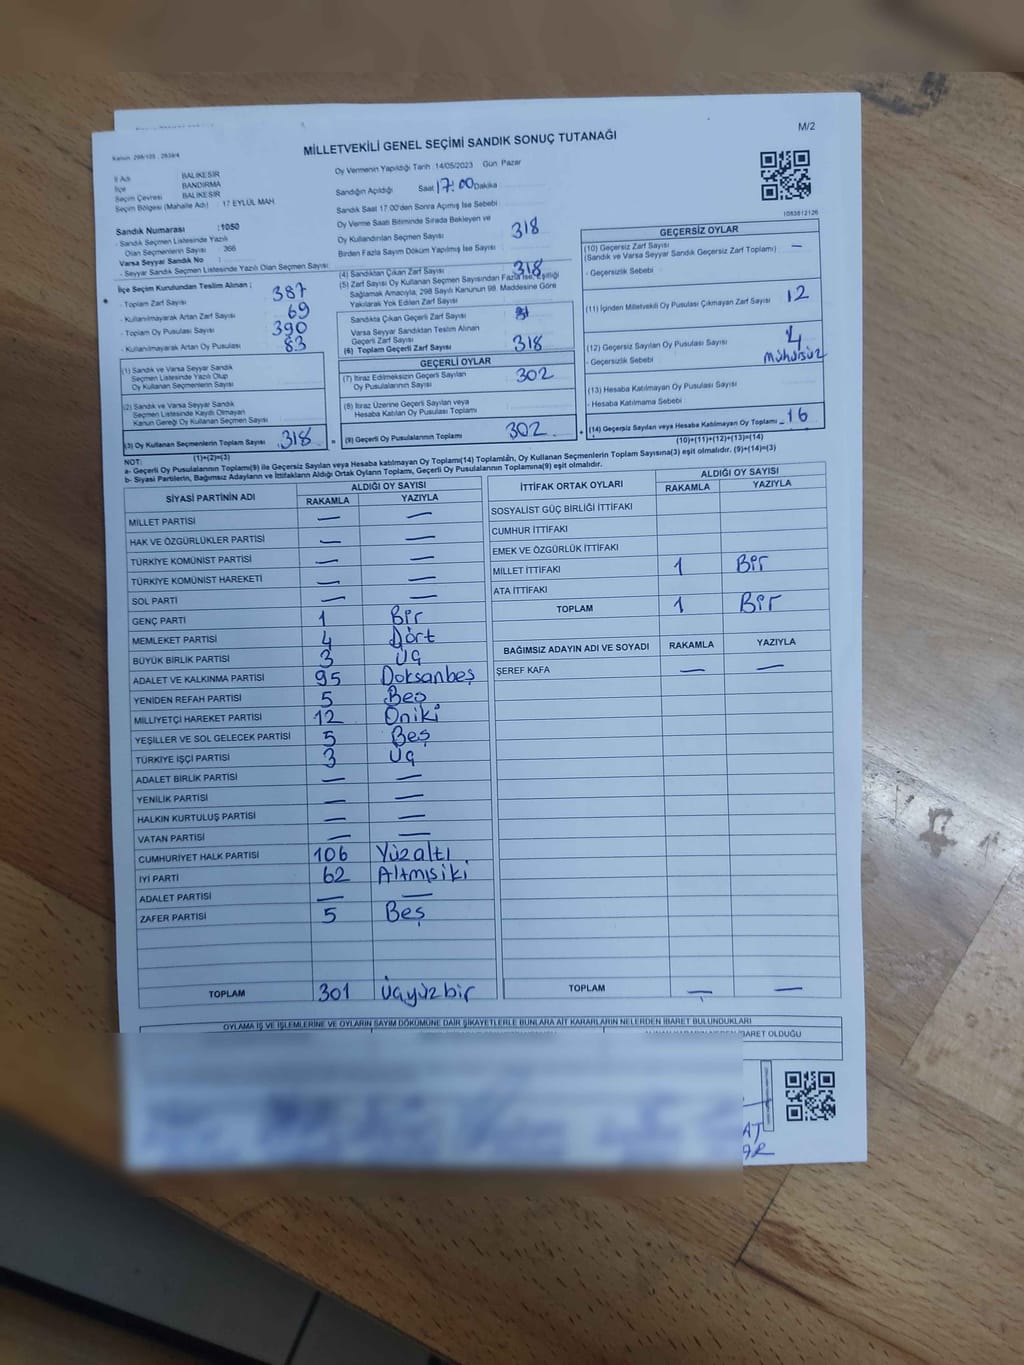 M/2
Kanun: 298/105 , 2839/4
MİLLETVEKİLİ GENEL SEÇİMİ SANDIK SONUÇ TUTANAĞI
İl Adı : BALIKESİR
İlçe : BANDIRMA
Seçim Çevresi : BALIKESİR
Seçim Bölgesi (Mahalle Adı) : 17 EYLÜL MAH.
Sandık Numarası : 1050
- Sandık Seçmen Listesinde Yazılı
Olan Seçmenlerin Sayısı : 366
Varsa Seyyar Sandık No :
- Seyyar Sandık Seçmen Listesinde Yazılı Olan Seçmen Sayısı:
İlçe Seçim Kurulundan Teslim Alınan ;
- Toplam Zarf Sayısı 387
- Kullanılmayarak Artan Zarf Sayısı 69
- Toplam Oy Pusulası Sayısı 390
- Kullanılmayarak Artan Oy Pusulası 83
(1) Sandık ve Varsa Seyyar Sandık
Seçmen Listesinde Yazılı Olup
Oy Kullanan Seçmenlerin Sayısı
(2) Sandık ve Varsa Seyyar Sandık
Seçmen Listesinde Kayıtlı Olmayan
Kanun Gereği Oy Kullanan Seçmen Sayısı
(3) Oy Kullanan Seçmenlerin Toplam Sayısı 318
(1)+(2)=(3)
Oy Vermenin Yapıldığı Tarih : 14/05/2023 Gün: Pazar
Sandığın Açıldığı Saat 17:00 Dakika
Sandık Saat 17.00'den Sonra Açılmış İse Sebebi
Oy Verme Saati Bitiminde Sırada Bekleyen ve
Oy Kullandırılan Seçmen Sayısı 318
Birden Fazla Sayım Döküm Yapılmış İse Sayısı
(4) Sandıktan Çıkan Zarf Sayısı 318
(5) Zarf Sayısı Oy Kullanan Seçmen Sayısından Fazla İse, Eşitliği
Sağlamak Amacıyla; 298 Sayılı Kanunun 98. Maddesine Göre
Yakılarak Yok Edilen Zarf Sayısı
Sandıkta Çıkan Geçerli Zarf Sayısı
Varsa Seyyar Sandıktan Teslim Alınan
Geçerli Zarf Sayısı
(6) Toplam Geçerli Zarf Sayısı 318
GEÇERLİ OYLAR
(7) İtiraz Edilmeksizin Geçerli Sayılan
Oy Pusulalarının Sayısı 302
(8) İtiraz Üzerine Geçerli Sayılan veya
Hesaba Katılan Oy Pusulası Toplamı
(9) Geçerli Oy Pusulalarının Toplamı 302
1083812126
GEÇERSİZ OYLAR
(10) Geçersiz Zarf Sayısı —
(Sandık ve Varsa Seyyar Sandık Geçersiz Zarf Toplamı)
- Geçersizlik Sebebi
(11) İçinden Milletvekili Oy Pusulası Çıkmayan Zarf Sayısı 12
(12) Geçersiz Sayılan Oy Pusulası Sayısı 4
- Geçersizlik Sebebi mühürsüz
(13) Hesaba Katılmayan Oy Pusulası Sayısı
- Hesaba Katılmama Sebebi
(14) Geçersiz Sayılan veya Hesaba Katılmayan Oy Toplamı 16
(10)+(11)+(12)+(13)=(14)
NOT:
a- Geçerli Oy Pusulaları Toplamı(9) ile Geçersiz Sayılan veya Hesaba katılmayan Oy Toplamı(14) Toplamları, Oy Kullanan Seçmenlerin Toplam Sayısına(3) eşit olmalıdır. (9)+(14)=(3)
b- Siyasi Partilerin, Bağımsız Adayların ve İttifakların Aldığı Ortak Oyların Toplamı, Geçerli Oy Pusulalarının Toplamına(9) eşit olmalıdır.
SİYASİ PARTİNİN ADI ALDIĞI OY SAYISI
RAKAMLA YAZIYLA
MİLLET PARTİSİ — —
HAK VE ÖZGÜRLÜKLER PARTİSİ — —
TÜRKİYE KOMÜNİST PARTİSİ — —
TÜRKİYE KOMÜNİST HAREKETİ — —
SOL PARTİ — —
GENÇ PARTİ 1 Bir
MEMLEKET PARTİSİ 4 Dört
BÜYÜK BİRLİK PARTİSİ 3 Üç
ADALET VE KALKINMA PARTİSİ 95 Doksanbeş
YENİDEN REFAH PARTİSİ 5 Beş
MİLLİYETÇİ HAREKET PARTİSİ 12 Oniki
YEŞİLLER VE SOL GELECEK PARTİSİ 5 Beş
TÜRKİYE İŞÇİ PARTİSİ 3 Üç
ADALET BİRLİK PARTİSİ — —
YENİLİK PARTİSİ — —
HALKIN KURTULUŞ PARTİSİ — —
VATAN PARTİSİ — —
CUMHURİYET HALK PARTİSİ 106 Yüzaltı
İYİ PARTİ 62 Altmışiki
ADALET PARTİSİ — —
ZAFER PARTİSİ 5 Beş
TOPLAM 301 üçyüzbir
İTTİFAK ORTAK OYLARI ALDIĞI OY SAYISI
RAKAMLA YAZIYLA
SOSYALİST GÜÇ BİRLİĞİ İTTİFAKI
CUMHUR İTTİFAKI
EMEK VE ÖZGÜRLÜK İTTİFAKI
MİLLET İTTİFAKI 1 Bir
ATA İTTİFAKI
TOPLAM 1 Bir
BAĞIMSIZ ADAYIN ADI VE SOYADI RAKAMLA YAZIYLA
ŞEREF KAFA — —
TOPLAM — —
OYLAMA İŞ VE İŞLEMLERİNE VE OYLARIN SAYIM DÖKÜMÜNE DAİR ŞİKAYETLERLE BUNLARA AİT KARARLARIN NELERDEN İBARET BULUNDUKLARI